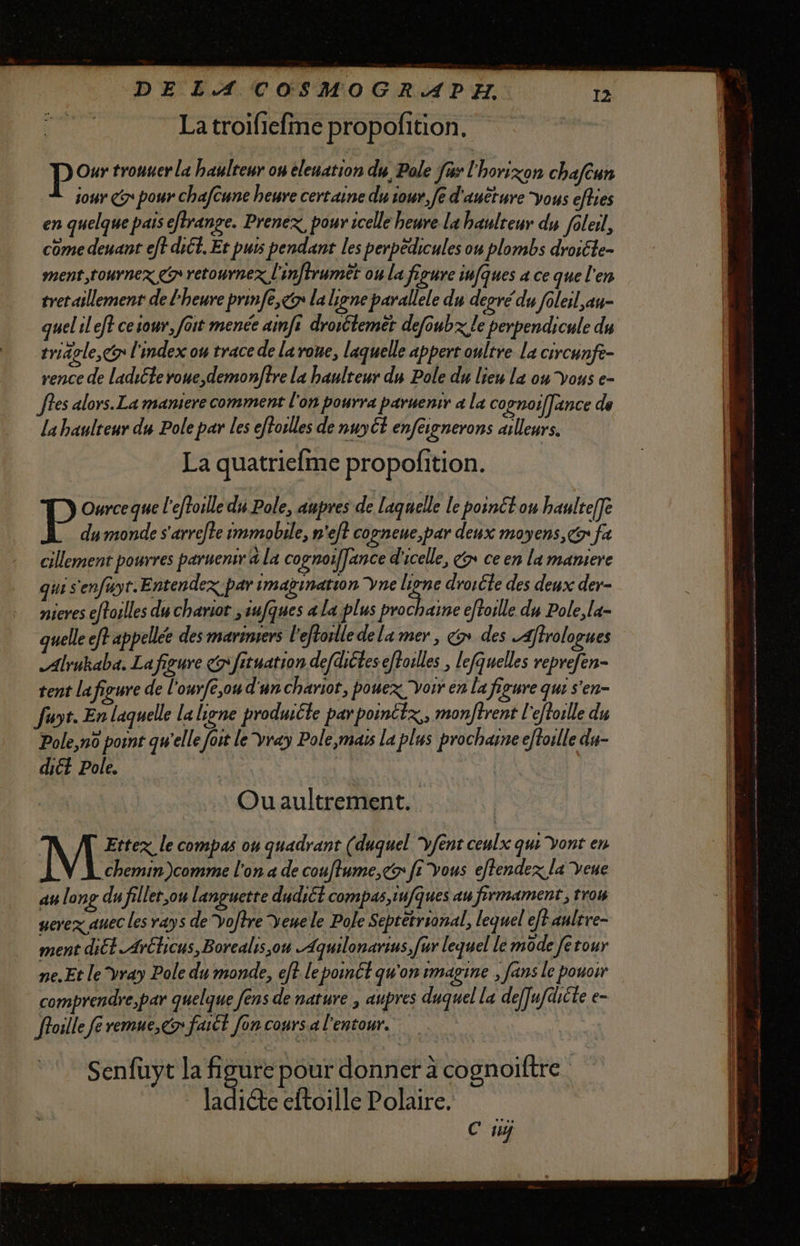 DE LA COSMOGRAPH. 12
La troiſieſme propoſition.
POur trouuer la haulteur ou eleuation du Pole ſur l'horizon chaſcun
iour & pour chaſcune heure certaine du iour, ſe d'auēture vous eſties
en quelque païs eſtrange. Prenez pour icelle heure la haulteur du ſoleil,
cōme deuant eſt dict. Et puis pendant les perpēdicules ou plombs droicte-
ment, tournez & retournez l'inſtrumēt ou la figure iuſques a ce que l'en
tretaillement de l'heure prinſe, & la ligne parallele du degré du ſoleil, au-
quel il eſt ce iour, ſoit menée ainſi droictemēt deſoubz le perpendicule du
triāgle, & l'index ou trace de la roue, laquelle appert oultre la circunfe-
rence de ladicte roue, demonſtre la haulteur du Pole du lieu la ou vous e-
ſtes alors. La maniere comment l'on pourra paruenir a la cognoiſſance de
la haulteur du Pole par les eſtoilles de nuyct enſeignerons ailleurs.
La quatrieſme propoſition.
POurce que l'eſtoille du Pole, aupres de laquelle le poinct ou haulteſſe
du monde s'arreſte immobile, n'eſt cogneue, par deux moyens, & fa
cillement pourres paruenir à la cognoiſſance d'icelle, & ce en la maniere
qui s'enſuyt. Entendez par imagination vne ligne droicte des deux der-
nieres eſtoilles du chariot, iuſques a la plus prochaine eſtoille du Pole, la-
quelle eſt appellée des mariniers l'eſtoille de la mer, & des Aſtrologues
Alrukaba. La figure & ſituation deſdictes eſtoilles, leſquelles repreſen-
tent la figure de l'ourſe, ou d'un chariot, pouez voir en la figure qui s'en-
ſuyt. En laquelle la ligne produicte par poinctz, monſtrent l'eſtoille du
Pole, nō point qu'elle ſoit le vray Pole, mais la plus prochaine eſtoille du-
dict Pole.
Ou aultrement.
MEttez le compas ou quadrant (duquel vſent ceulx qui vont en
chemin) comme l'on a de couſtume, & ſi vous eſtendez la veue
au long du fillet, ou languette dudict compas, iuſques au firmament, trou
uerez auec les rays de voſtre veue le Pole Septētrional, lequel eſt aultre-
ment dict Arcticus, Borealis, ou Aquilonarius, ſur lequel le mōde ſe tour
ne. Et le vray Pole du monde, eſt le poinct qu'on imagine, ſans le pouoir
comprendre, par quelque ſens de nature, aupres duquel la deſſuſdicte e-
ſtoille ſe remue, & faict ſon cours a l'entour.
Senſuyt la figure pour donner à cognoiſtre
ladicte eſtoille Polaire.
C iiij